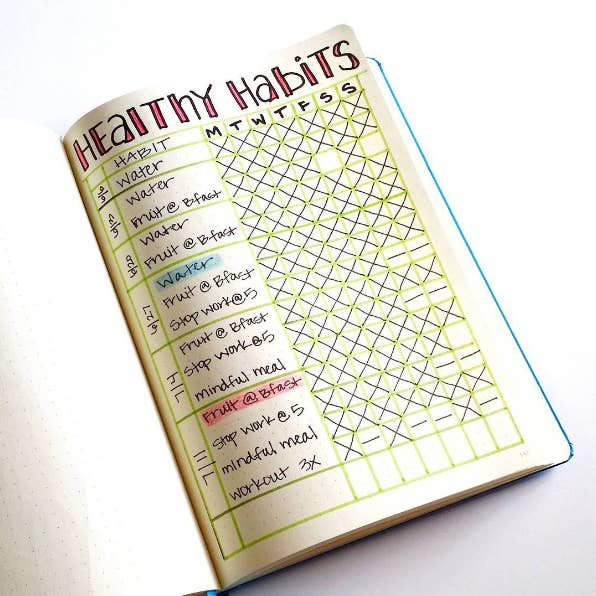 HEALTHY HABITS
HABIT M T W T F S S
6/6 Water
Water
6/13 Fruit @ Bfast
Water
6/20 Fruit @ Bfast
Water
Fruit @ Bfast
6/27 Stop work@5
Fruit @ Bfast
Stop work@5
7/4 mindful meal
Fruit @ Bfast
Stop work @ 5
mindful meal
7/11 workout 3x